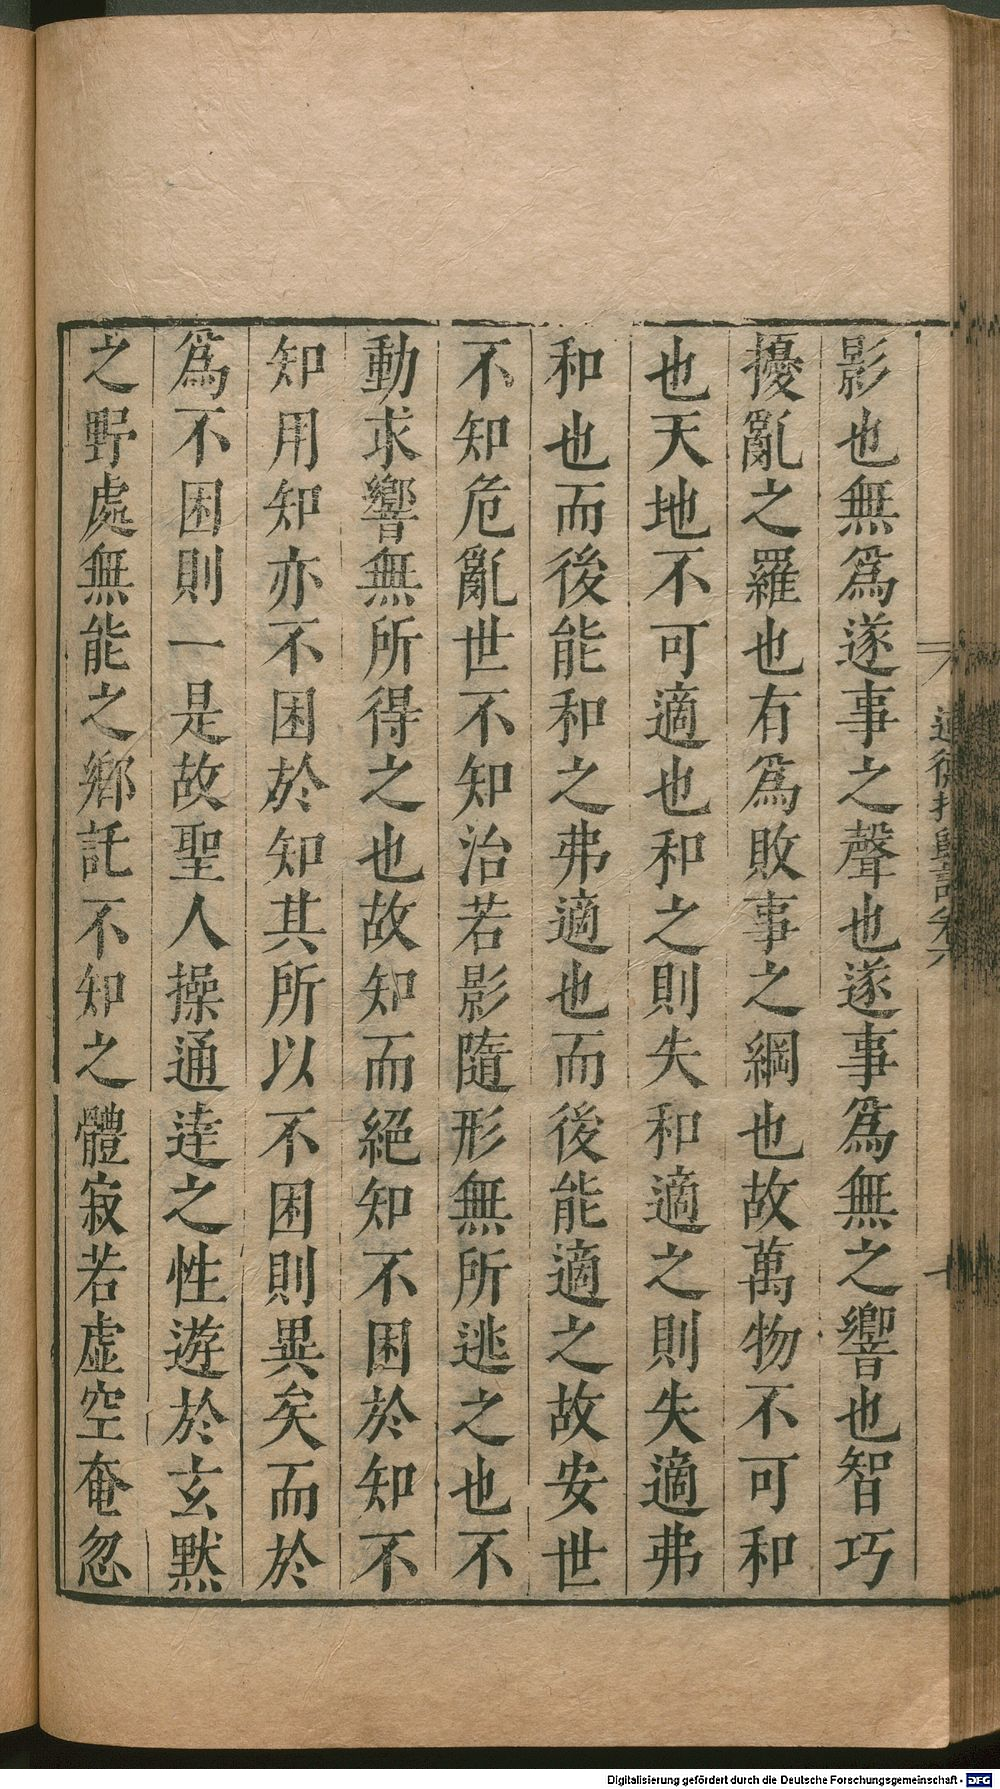 影也無爲遂事之聲也遂事爲無之響也智巧
擾亂之羅也有爲敗事之綱也故萬物不可和
也天地不可適也和之則失和適之則失適弗
和也而後能和之弗適也而後能適之故安世
不知危亂世不知治若影隨形無所逃之也不
動求響無所得之也故知而絕知不困於知不
知用知亦不困於知其所以不困則異矣而於
爲不困則一是故聖人操通達之性遊於玄默
之野處無能之鄉託不知之體寂若虛空奄忽
道德指歸論卷六
十
Digitalisierung gefördert durch die Deutsche Forschungsgemeinschaft - DFG